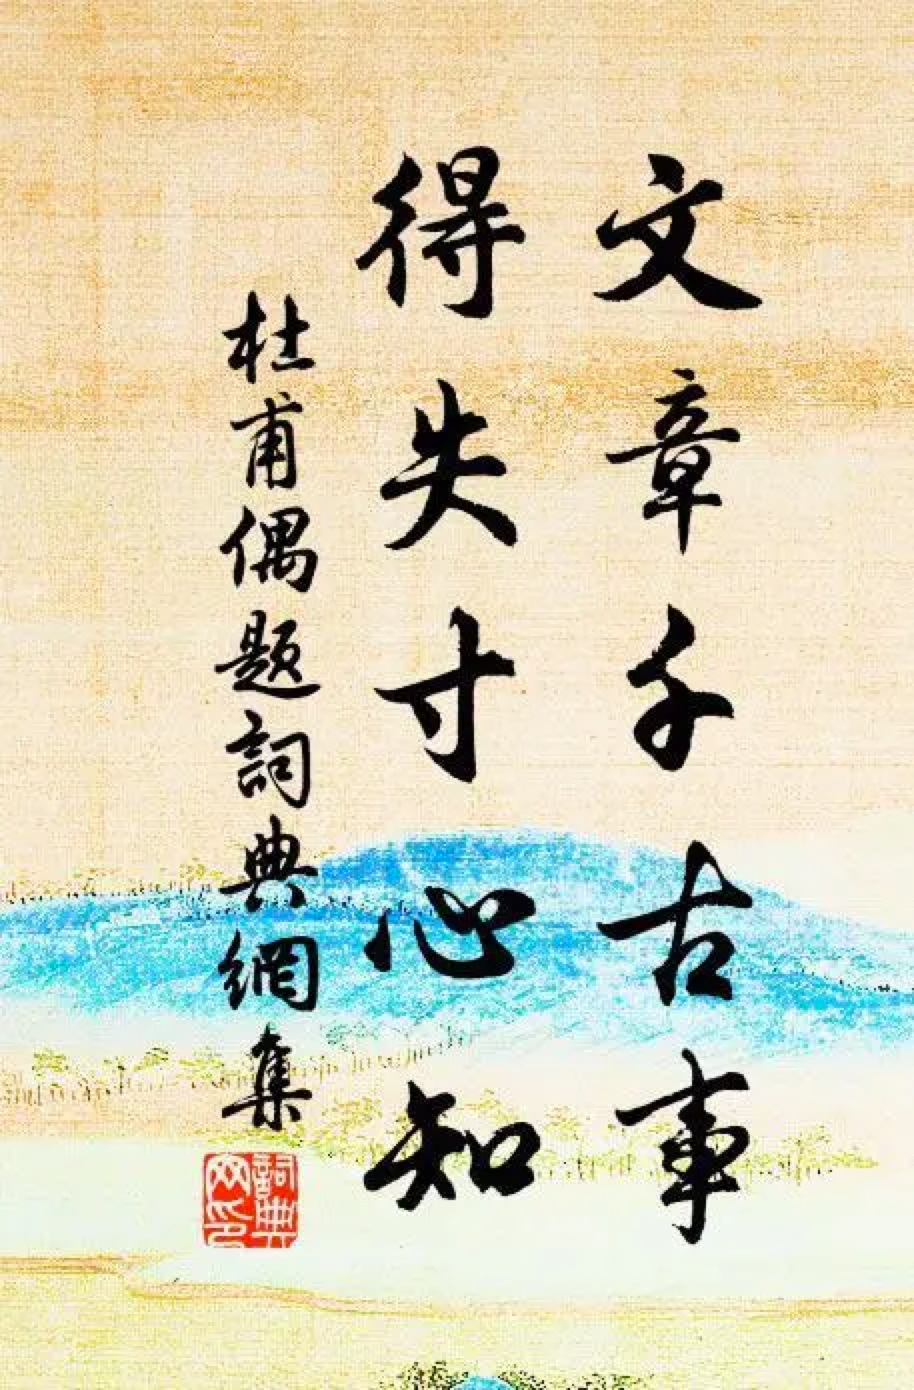 文章千古事
得失寸心知
杜甫偶题詞典網集
詞典
网印